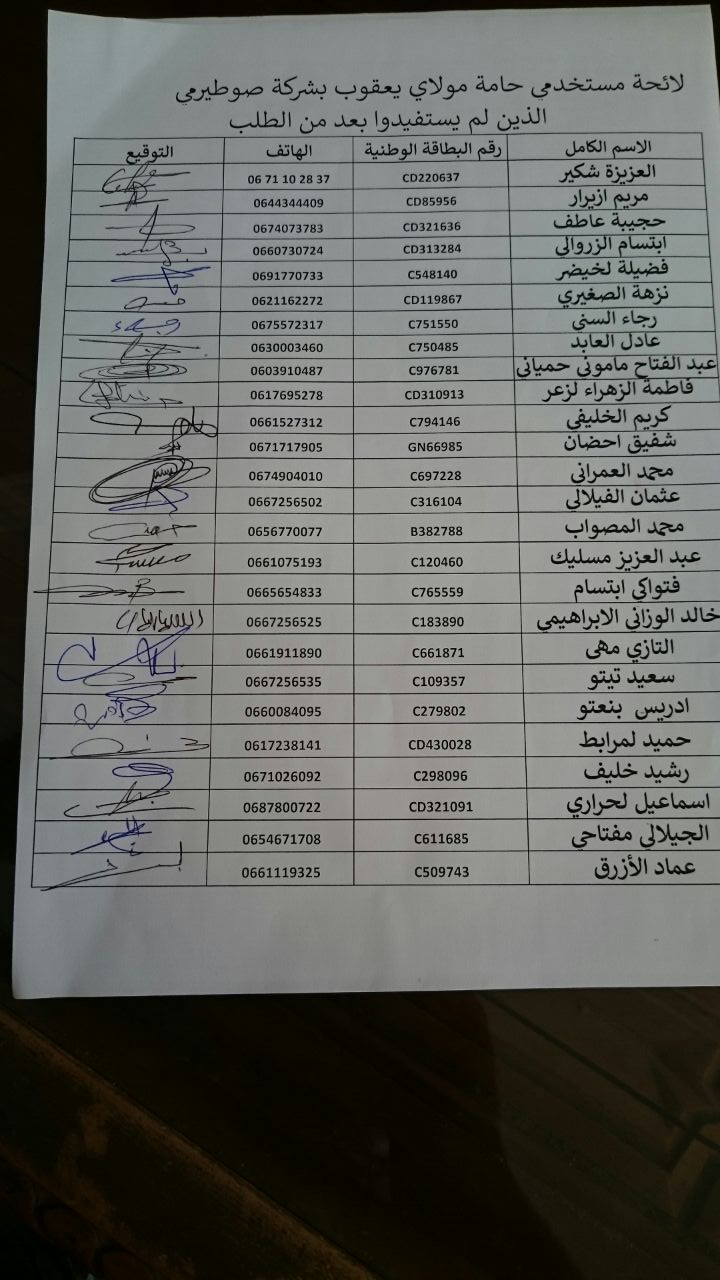 لائحة مستخدمي حامة مولاي يعقوب بشركة صوطيرمي
الذين لم يستفيدوا بعد من الطلب
الاسم الكامل رقم البطاقة الوطنية الهاتف التوقيع
العزيزة شكير CD220637 06 71 10 28 37
مريم ازيرار CD85956 0644344409
حجيبة عاطف CD321636 0674073783
ابتسام الزروالي CD313284 0660730724
فضيلة لخيضر C548140 0691770733
نزهة الصغيري CD119867 0621162272
رجاء السني C751550 0675572317
عادل العابد C750485 0630003460
عبد الفتاح ماموني حمياني C976781 0603910487
فاطمة الزهراء لزعر CD310913 0617695278
كريم الخليفي C794146 0661527312
شفيق احضان GN66985 0671717905
محمد العمراني C697228 0674904010
عثمان الفيلالي C316104 0667256502
محمد المصواب B382788 0656770077
عبد العزيز مسليك C120460 0661075193
فتواكي ابتسام C765559 0665654833
خالد الوزاني الابراهيمي C183890 0667256525
التازي مهى C661871 0661911890
سعيد تيتو C109357 0667256535
ادريس بنعتو C279802 0660084095
حميد لمرابط CD430028 0617238141
رشيد خليف C298096 0671026092
اسماعيل لحراري CD321091 0687800722
الجيلالي مفتاحي C611685 0654671708
عماد الأزرق C509743 0661119325